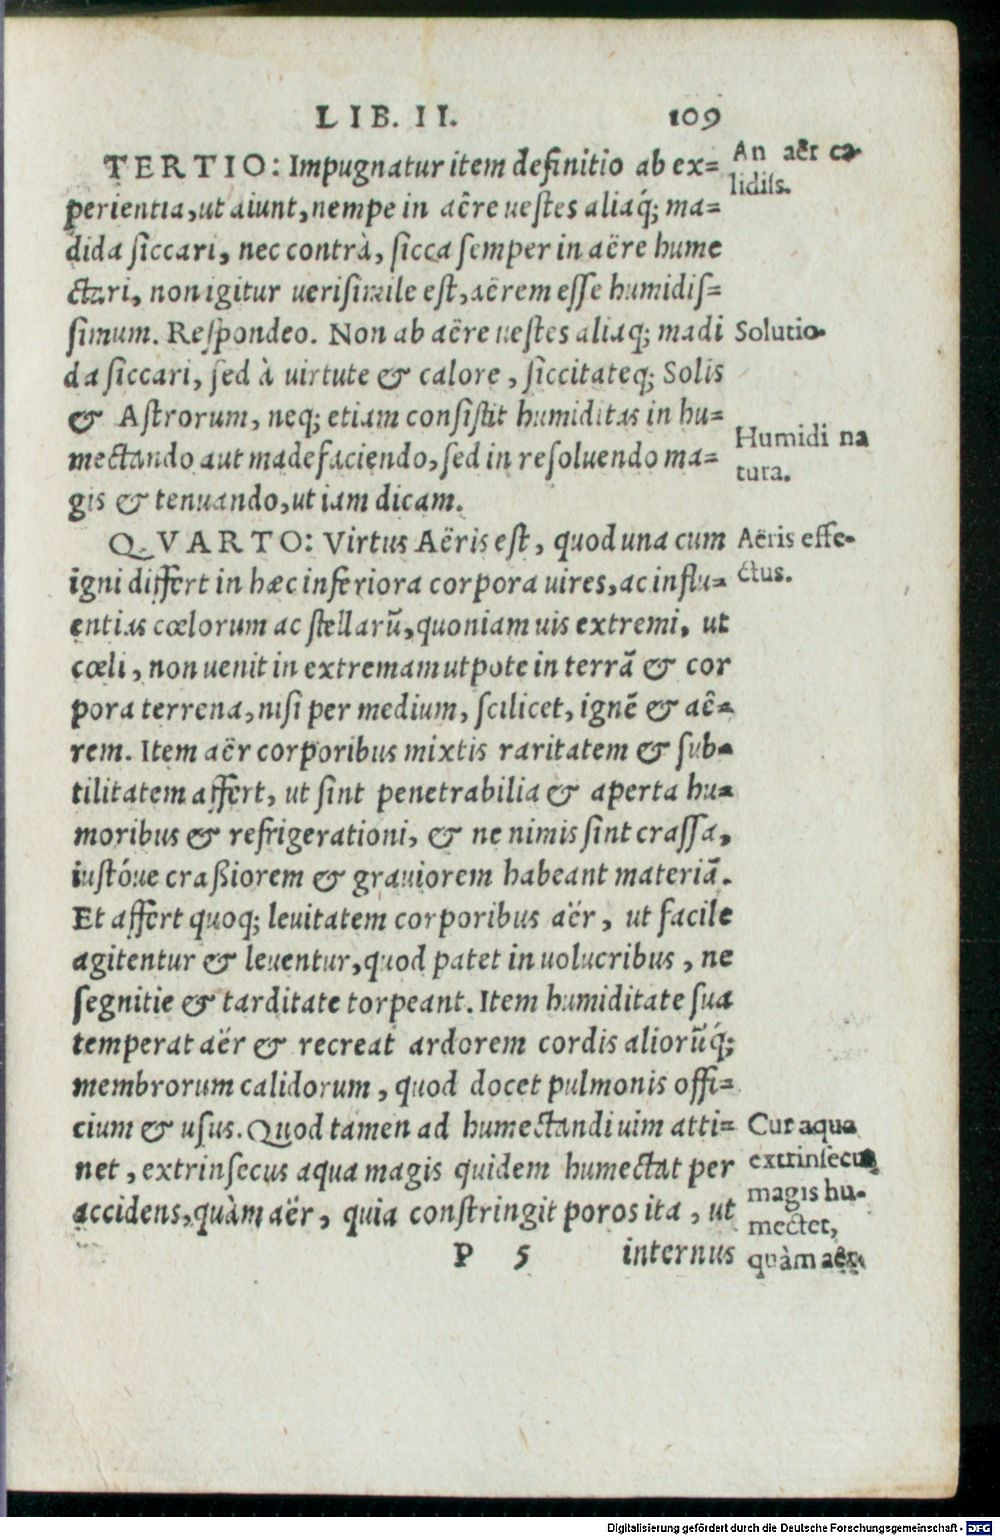 LIB. II. 109
TERTIO: Impugnatur item definitio ab ex=
perientia, ut aiunt, nempe in aëre uestes aliaq́; ma=
dida siccari, nec contrà, sicca semper in aëre hume
ctari, non igitur uerisimile est, aërem esse humidis=
simum. Respondeo. Non ab aëre uestes aliaq; madi
da siccari, sed à uirtute & calore, siccitateq; Solis
& Astrorum, neq; etiam consistit humiditas in hu=
mectando aut madefaciendo, sed in resoluendo ma=
gis & tenuando, ut iam dicam.
QVARTO: Virtus Aëris est, quod una cum
igni differt in hæc inferiora corpora uires, ac influ=
entias cœlorum ac stellarũ, quoniam uis extremi, ut
cœli, non uenit in extremam utpote in terrã & cor
pora terrena, nisi per medium, scilicet, ignẽ & aë=
rem. Item aër corporibus mixtis raritatem & sub=
tilitatem affert, ut sint penetrabilia & aperta hu=
moribus & refrigerationi, & ne nimis sint crassa,
iustóue craßiorem & grauiorem habeant materiã.
Et affert quoq; leuitatem corporibus aër, ut facile
agitentur & leuentur, quod patet in uolucribus, ne
segnitie & tarditate torpeant. Item humiditate sua
temperat aër & recreat ardorem cordis aliorũq́;
membrorum calidorum, quod docet pulmonis offi=
cium & usus. Quod tamen ad humectandi uim atti=
net, extrinsecus aqua magis quidem humectat per
accidens, quàm aër, quia constringit poros ita, ut
P 5 internus
An aër ca-
lidiss.
Solutio.
Humidi na
tura.
Aëris effe-
ctus.
Cur aqua
extrinsecus
magis hu-
mectet,
quàm aër.
Digitalisierung gefördert durch die Deutsche Forschungsgemeinschaft - DFG